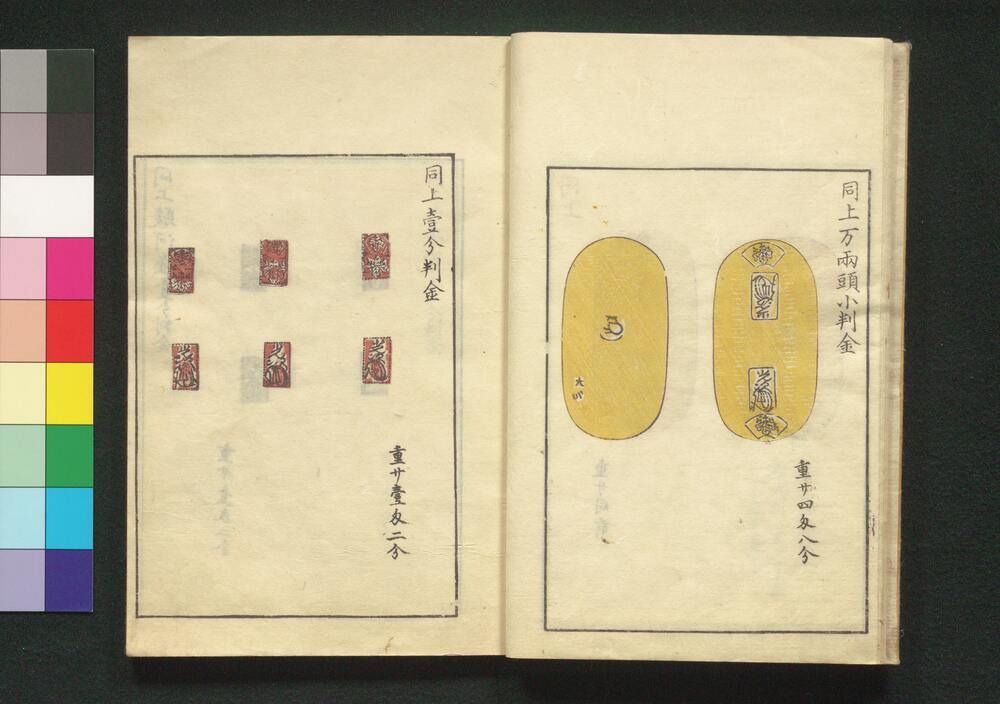 同上万兩頭小判金
重廿四匁八分
同上壹分判金
重廿壹匁二分